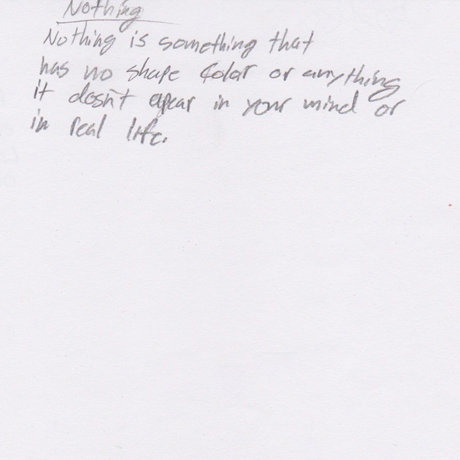 Nothing
Nothing is something that
has no shape Color or anything
it dosn't apear in your mind or
in real life.